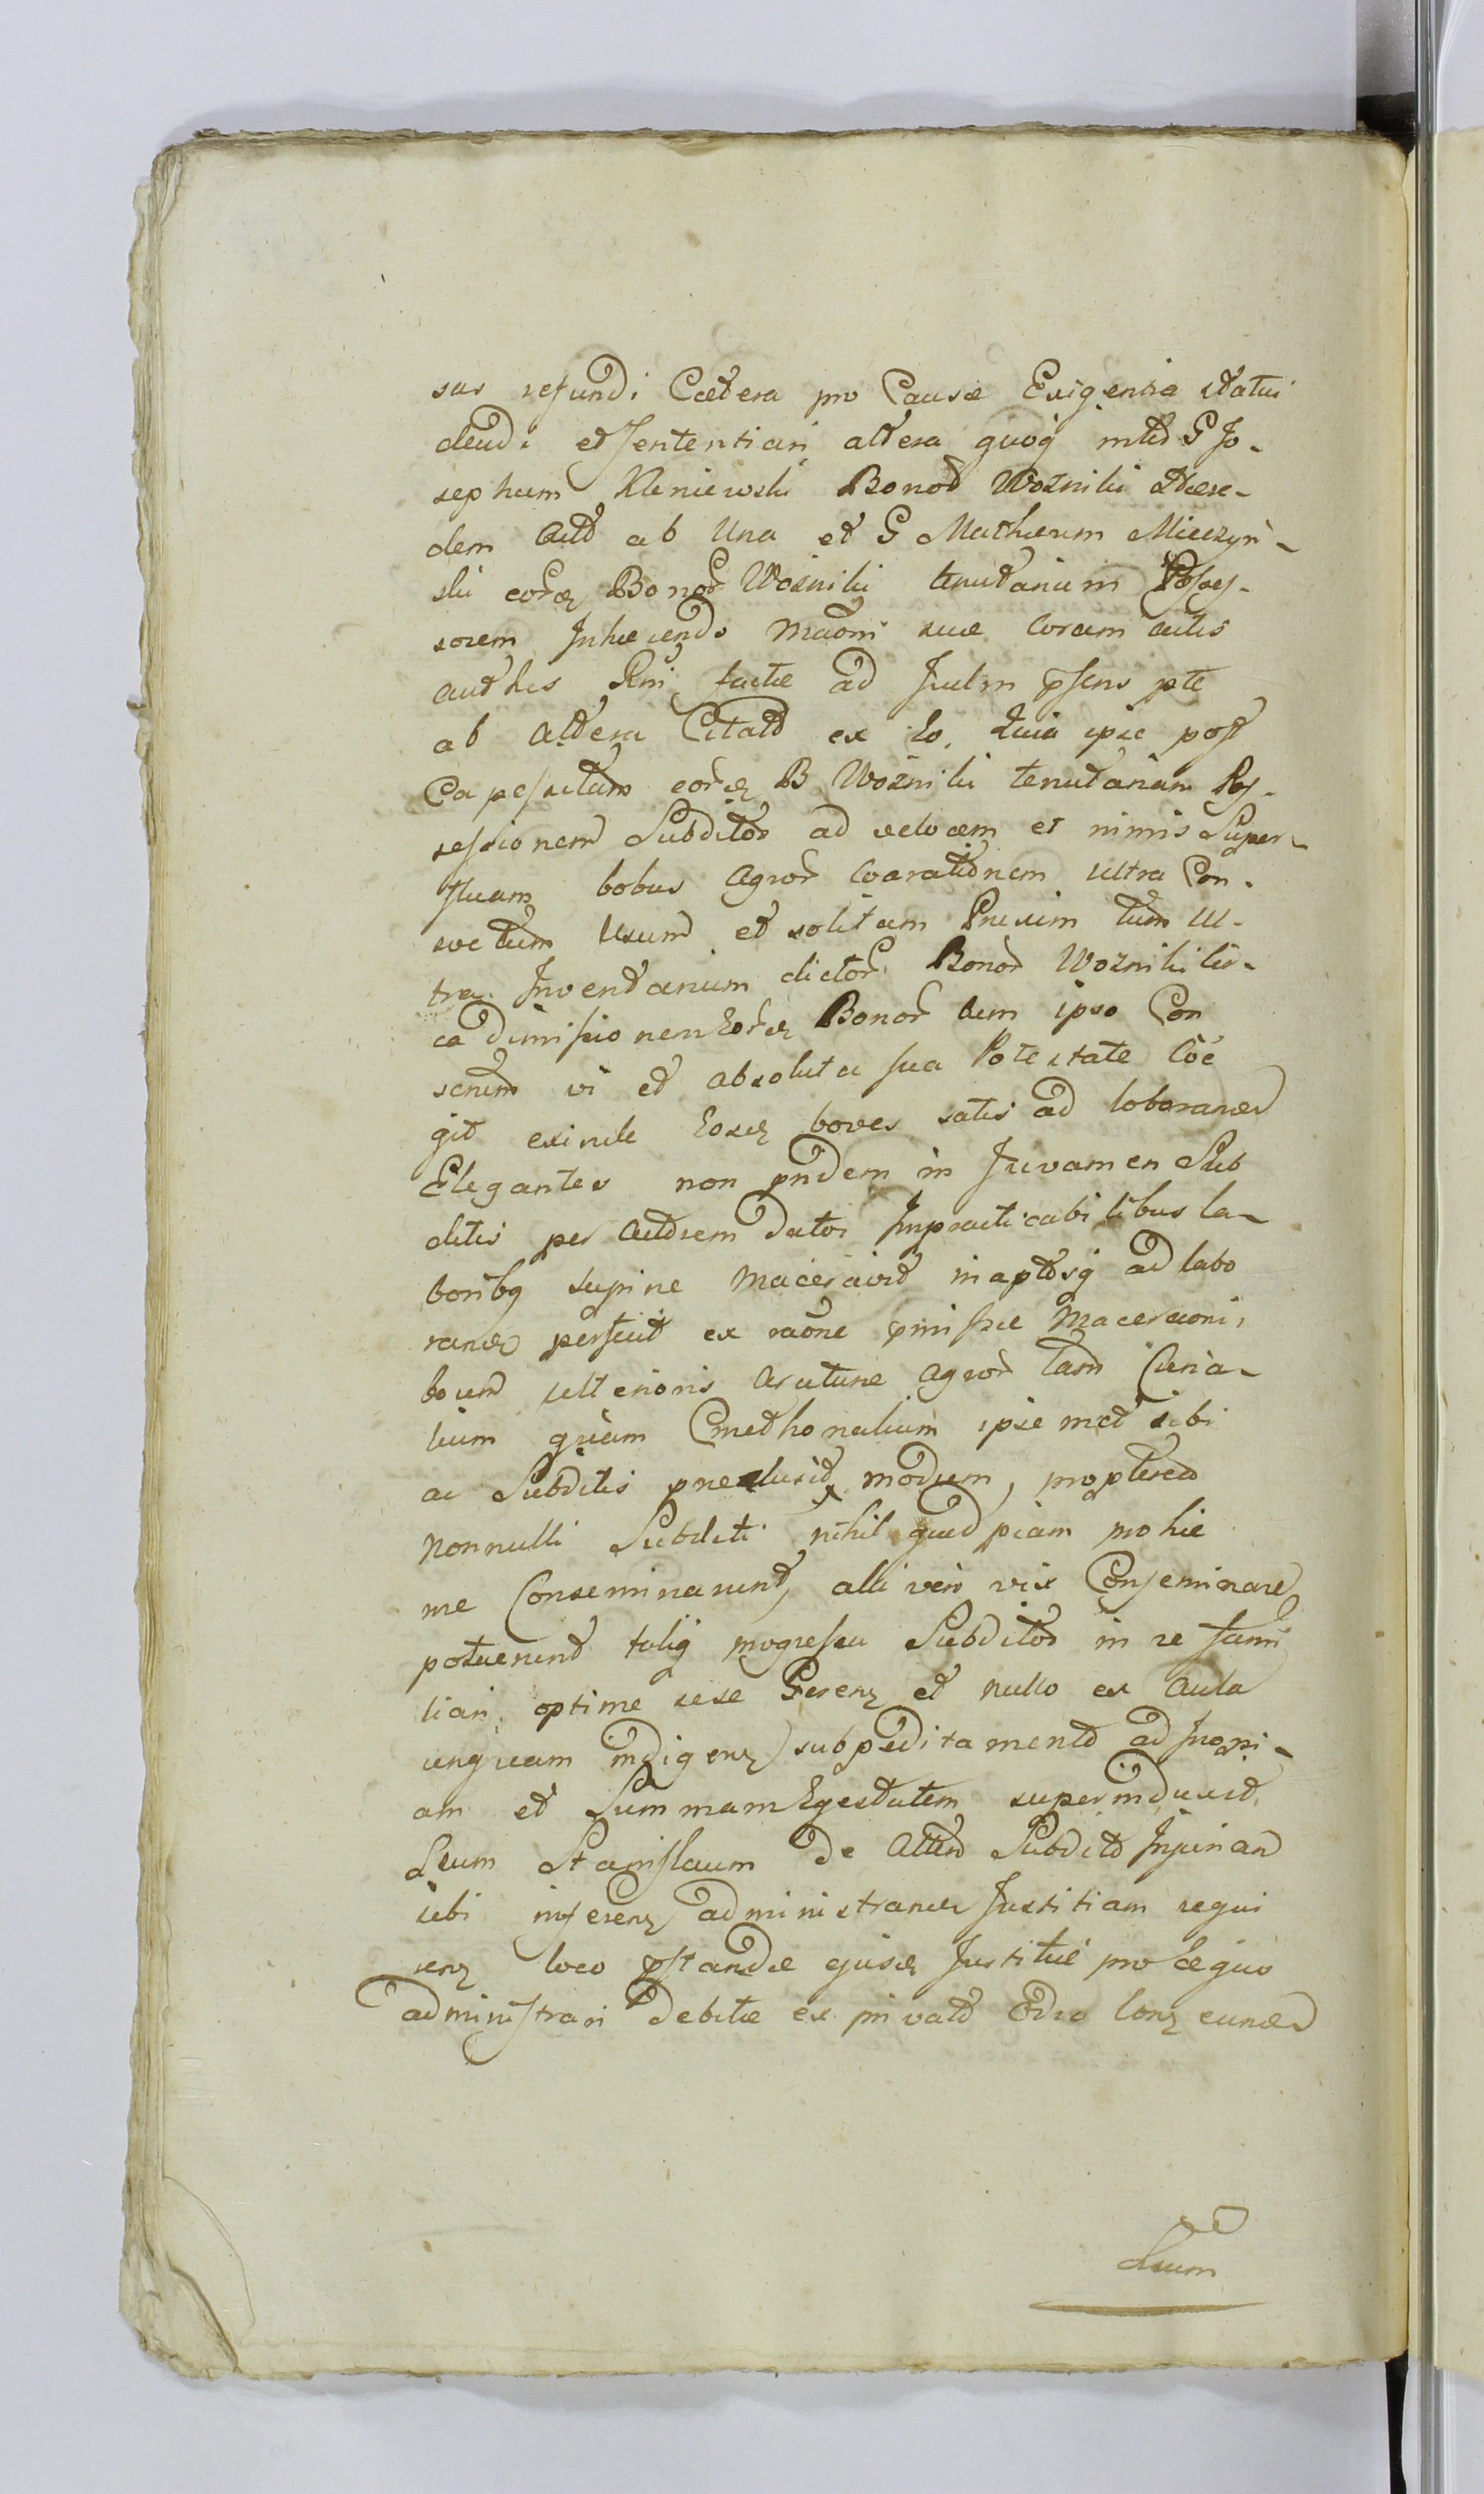 sus refundi Cætera pro Causæ Exigentia statui
decidi et sententiari altera quoq inter G Jo-
sephum Kleniewski Bonor Wozniki Hære-
dem Actorem ab Una et G Mathæum Mieczyn-
ski eorq Bonor Wozniki tenutarium Posses-
sorem Inhærendo maoni suæ coram actis
authis Rni factæ ad Judm psens pte
ab altera Citatum ex eo, quia ipse post
Capessitam eorq B Wozniki tenutariam Pos-
sessionem Subditos ad velocem et nimis Super-
fluam bobus agror Coarationem ultra Con-
svetum Usum et solitam Praxim tum ul-
tra Inventarium dictor Bonor Wozniki cir-
ca dimissionem eorq Bonor cum ipso Con
scrum vi et absoluta sua Potestate Coe
git exinde eosq boves satis ad laborand
Elegantes non pridem in Juvamen Sub
ditis per Actorem datos Impracticabilibus la-
boribq supine maceravit inaptosq ad labo
rand perfecit ex raone pmissæ macerationis
boum ulterioris araturæ agror tam Curia-
lium quam Cmethonalium ipsemet sibi
ac Subditis præclusit modum, propterea
nonnulli Subditi nihil quidpiam pro hie
me Conseminarunt, alli vero vix Conseminare
potuerunt taliq progressu Subditos in re fami
liari optime sese Gerenq et nullo ex aula
unquam indigenq subpeditamento ad Inopi-
am et Summam Egestatem superinduxit,
Lrum Stanislaum de Subdito Injuriam
sibi inferenq administrand Justitiam requi
renq loco pstandæ ejusq Justitiæ pro æquo
administrari debitæ ex privato Odio
Lrum